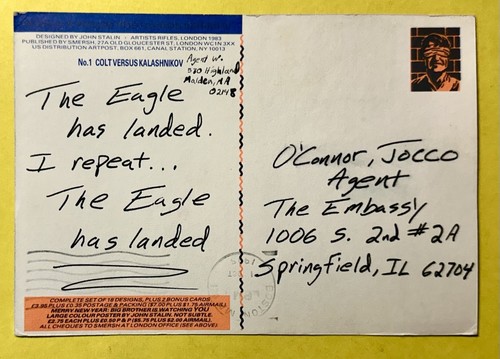 DESIGNED BY JOHN STALIN - ARTISTS RIFLES, LONDON 1983
PUBLISHED BY SMERSH. 27A OLD GLOUCESTER ST, LONDON WC1N 3XX
US DISTRIBUTION ARTPOST, BOX 661, CANAL STATION, NY 10013
No.1 COLT VERSUS KALASHNIKOV
Agent W.
Highland
Malden, MA
02148
The Eagle
has landed.
I repeat...
The Eagle
has landed
O'Connor, Jocco
Agent
The Embassy
1006 S. 2nd #2A
Springfield, IL 62704
COMPLETE SET OF 18 DESIGNS, PLUS 2 BONUS CARDS
£3.95 PLUS £0.35 POSTAGE & PACKING ($7.00 PLUS $1.75 AIRMAIL).
MERRY NEW YEAR: BIG BROTHER IS WATCHING YOU
LARGE COLOUR POSTER BY JOHN STALIN. NOT SUBTLE.
£2.75 EACH PLUS £0.50 P & P ($5.75 PLUS $2.00 AIRMAIL).
ALL CHEQUES TO SMERSH AT LONDON OFFICE (SEE ABOVE)